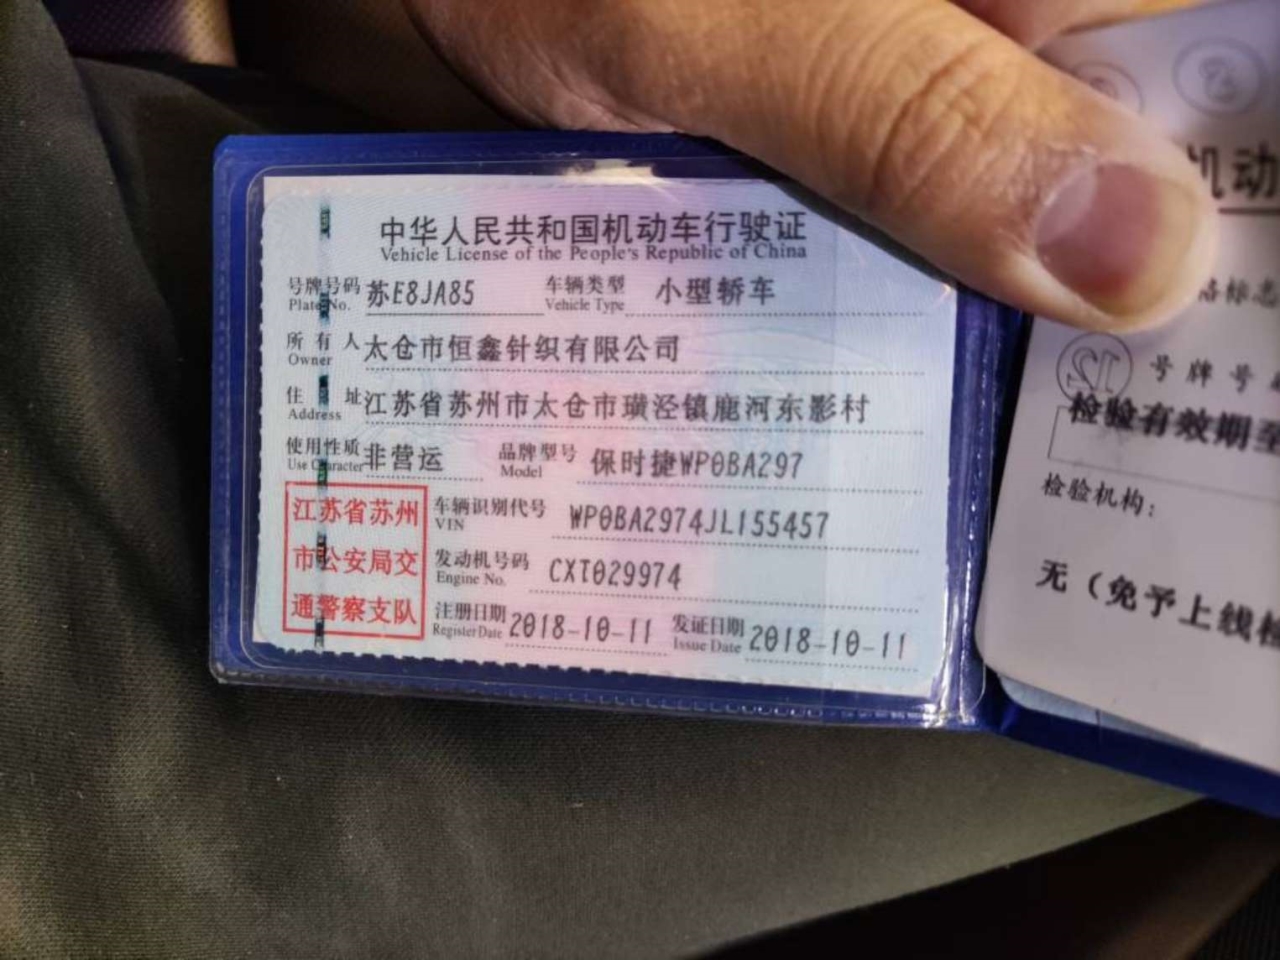 中华人民共和国机动车行驶证
Vehicle License of the People's Republic of China
号牌号码 苏E8JA85 车辆类型 小型轿车
Plate No. Vehicle Type
所有人 太仓市恒鑫针织有限公司
Owner
住址 江苏省苏州市太仓市璜泾镇鹿河东影村
Address
使用性质 非营运 品牌型号 保时捷WP0BA297
Use Character Model
江苏省苏州
市公安局交
通警察支队
车辆识别代号 WP0BA2974JL155457
VIN
发动机号码 CXT029974
Engine No.
注册日期 2018-10-11 发证日期 2018-10-11
Register Date Issue Date
机动
格标志
12 号牌号
检验有效期至
检验机构：
无（免予上线检